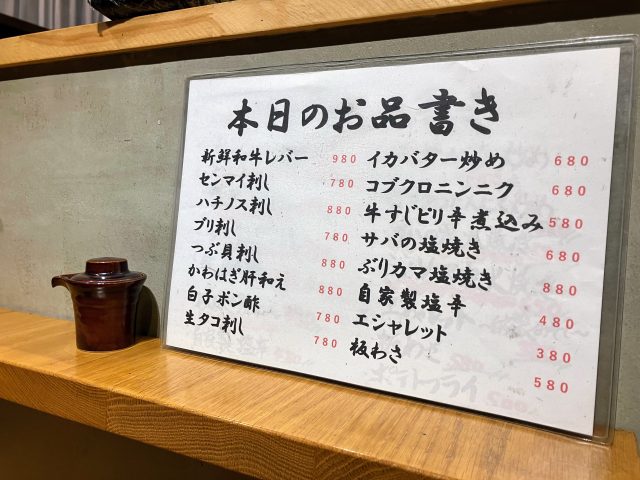 本日のお品書き
新鮮和牛レバー 980
センマイ刺し 780
ハチノス刺し 880
ブリ刺し 780
つぶ貝刺し 880
かわはぎ肝和え 880
白子ポン酢 780
生タコ刺し 780
イカバター炒め 680
コブクロニンニク 680
牛すじピリ辛煮込み 580
サバの塩焼き 680
ぶりカマ塩焼き 880
自家製塩辛 480
エシャレット 380
板わさ 580